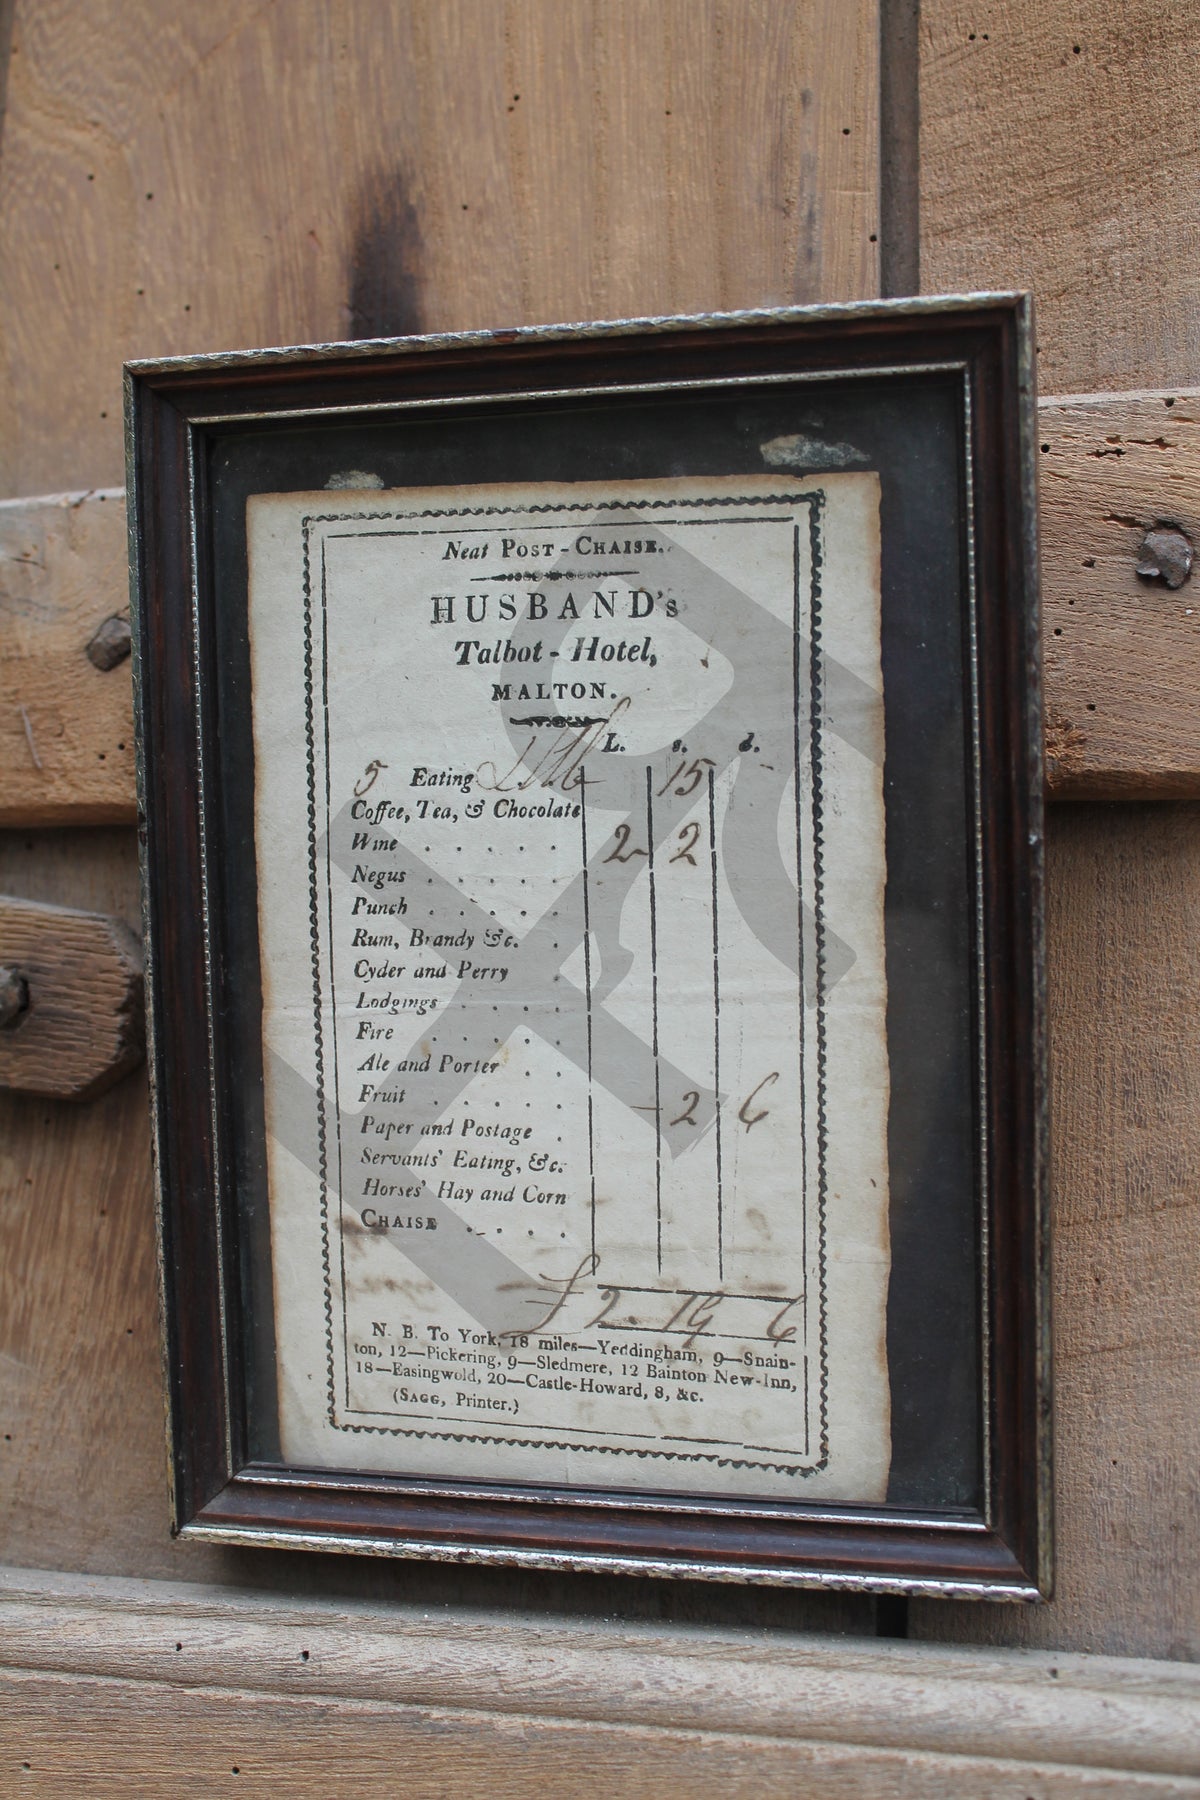 Neat POST-CHAISE.
HUSBAND's
Talbot-Hotel,
MALTON.
L. s. d.
5 Eating 15
Coffee, Tea, & Chocolate
Wine . . . . . 2 2
Negus . . . . .
Punch . . . . .
Rum, Brandy &c. .
Cyder and Perry .
Lodgings . . . .
Fire . . . . .
Ale and Porter . .
Fruit . . . . . - 2 6
Paper and Postage .
Servants' Eating, &c.
Horses' Hay and Corn
CHAISE . . . .
£ 2. 19 6
N. B. To York, 18 miles—Yeddingham, 9—Snain-
ton, 12—Pickering, 9—Sledmere, 12 Bainton New-Inn,
18—Easingwold, 20—Castle-Howard, 8, &c.
(SAGG, Printer.)